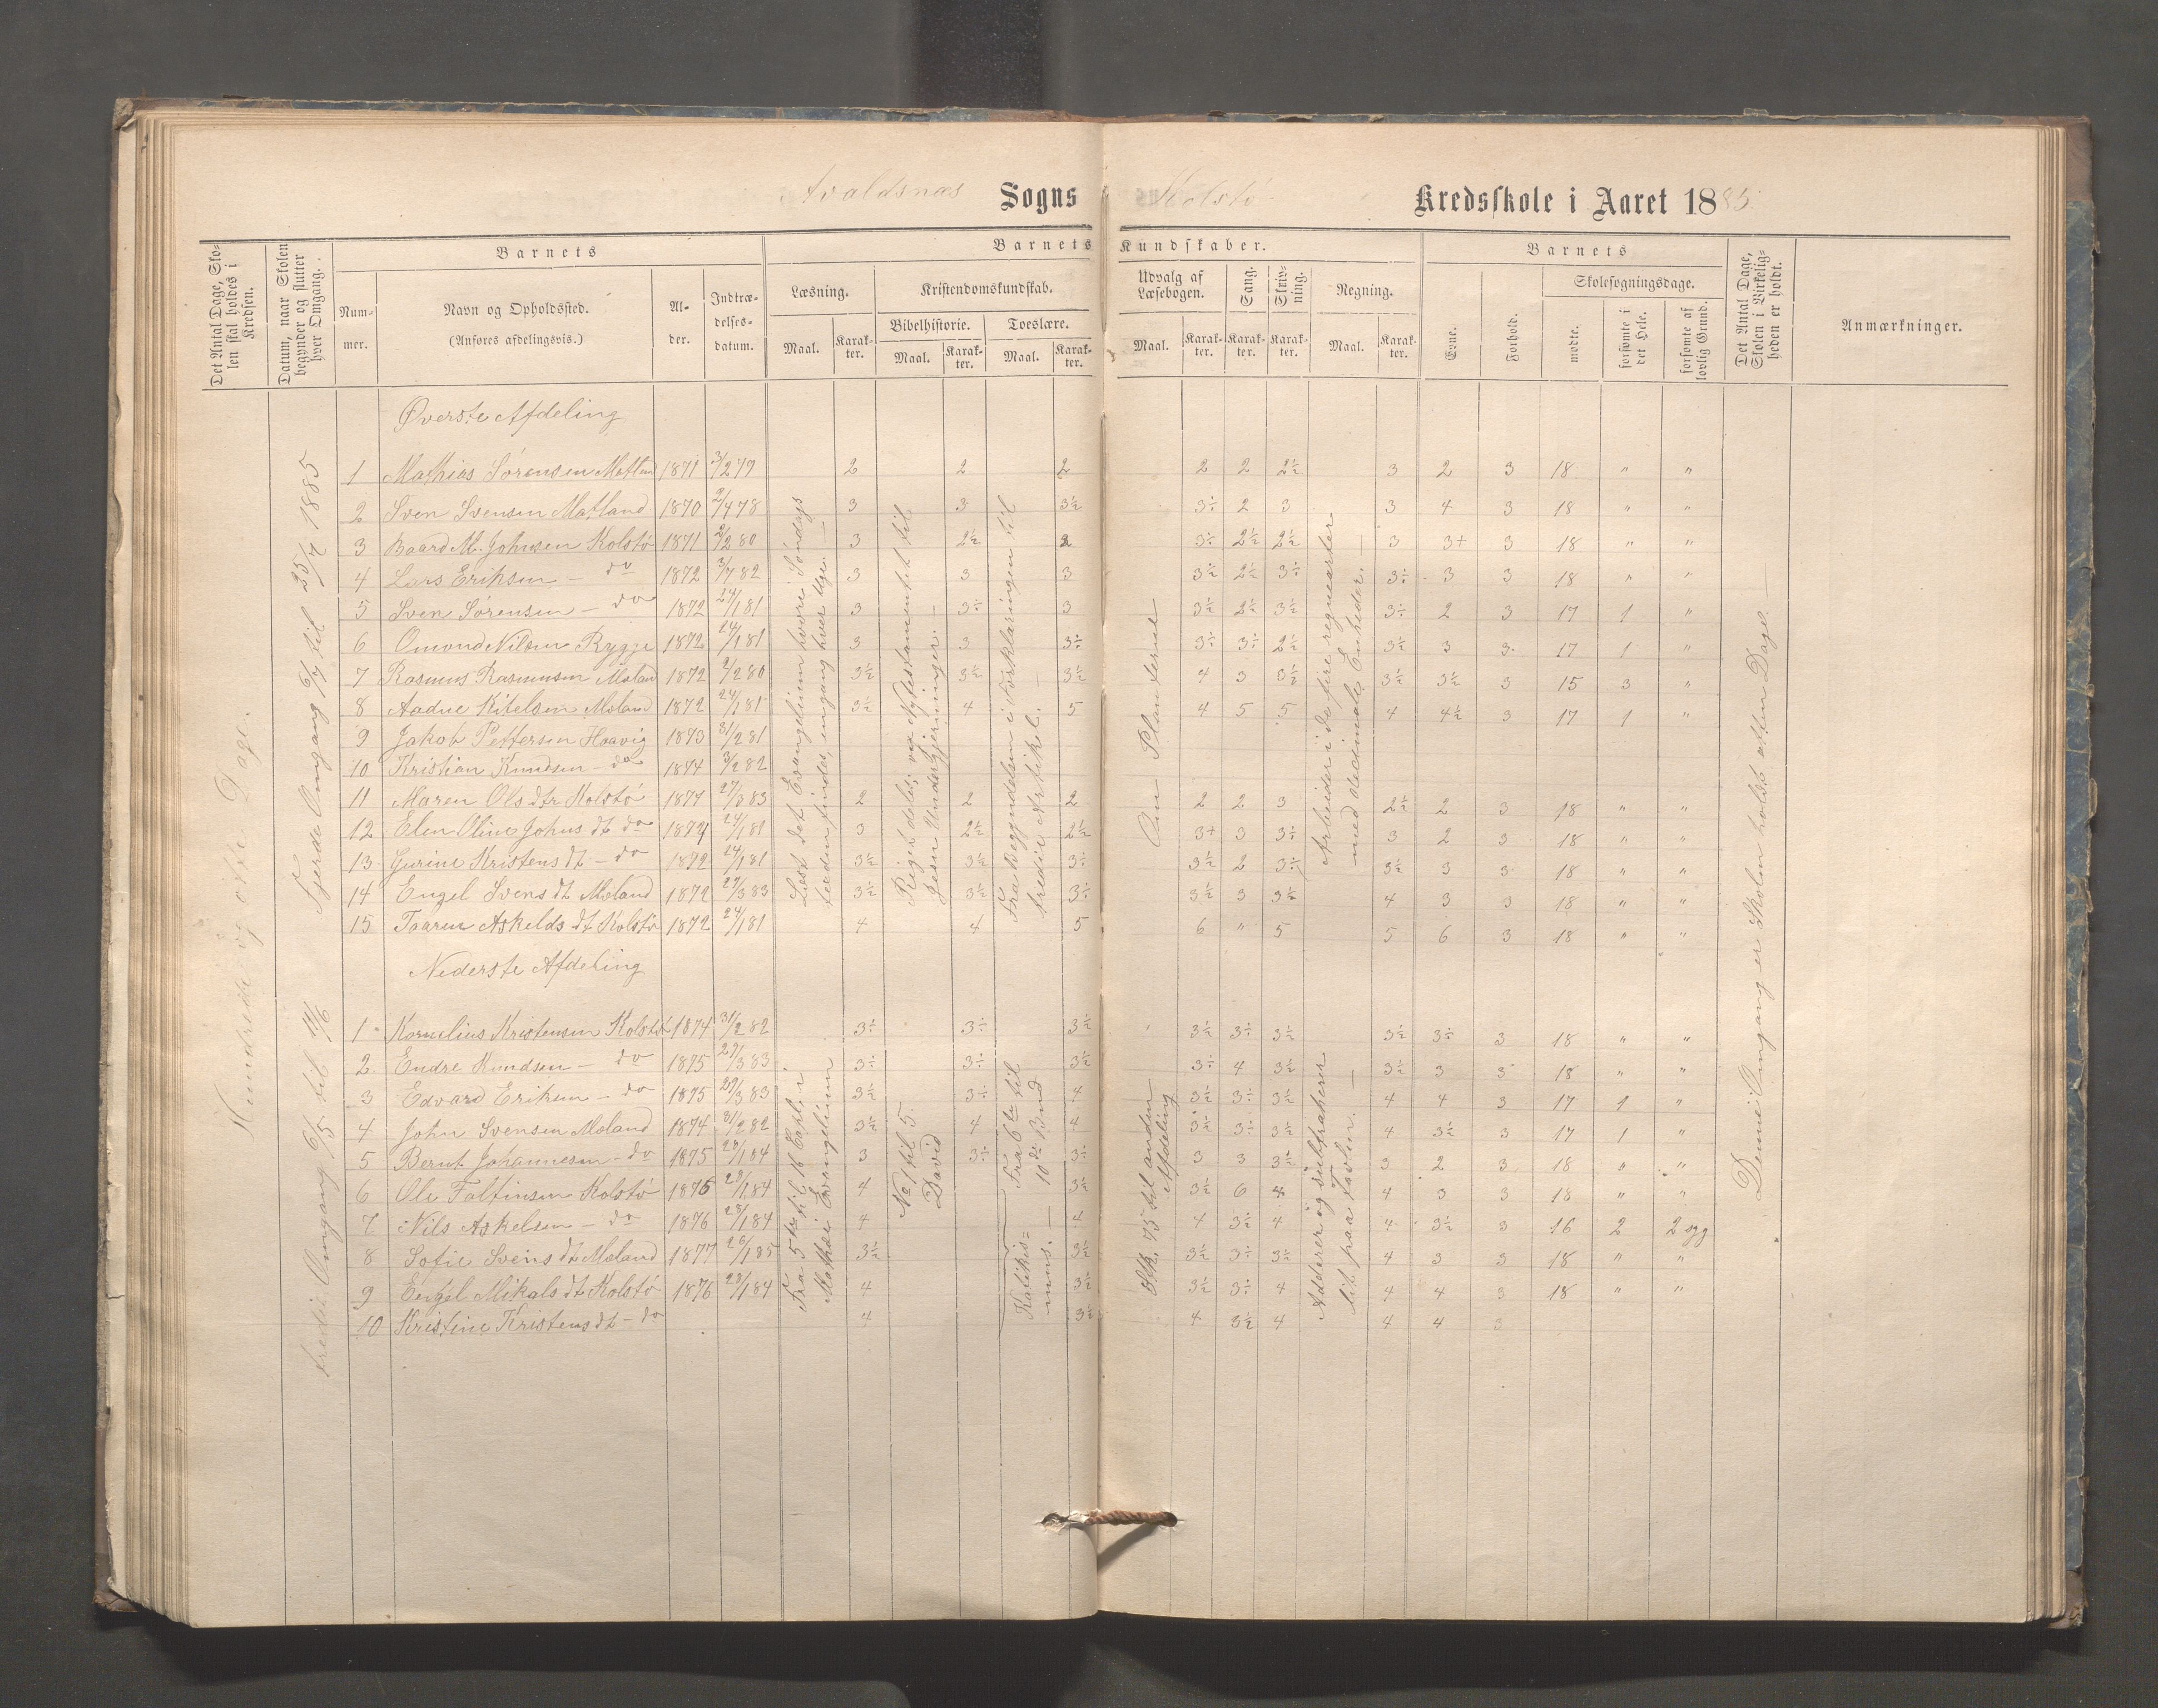 Avaldsnæs Sogns Kolstø Kredsskole i Aaret 1885
Det Antal Dage, Skolen skal holdes i Kredsen.
Datum, naar Skolen begynder og slutter hver Omgang.
Barnets
Nummer.
Navn og Opholdssted.
(Anføres afdelingsvis.)
Alder.
Indtrædelsesdatum.
Barnets Kundskaber.
Læsning.
Maal.
Karakter.
Kristendomskundskab.
Bibelhistorie.
Maal.
Karakter.
Troeslære.
Maal.
Karakter.
Udvalg af Læsebogen.
Maal.
Karakter.
Sang.
Karakter.
Skrivning.
Karakter.
Regning.
Maal.
Karakter.
Barnets
Evne.
Forhold.
Skolesøgningsdage.
mødte.
forsømte i det Hele.
forsømte af lovlig Grund.
Det Antal Dage, Skolen i Virkeligheden er holdt.
Anmærkninger.
Hundrede og otte Dage.
Fjerde Omgang 6/7 til 25/7 1885
tredie Omgang
Øverste Afdeling
1 Mathias Sørensen 1871 3/2 79 2 2 2 2 2 2½ 3 2 3 18 " "
2 Sven Svensen Matland 1870 2/4 78 3 3 3½ 3÷ 2 3 3 4 3 18 " "
3 Baard M. Johnsen Kolstø 1871 2/2 80 3 2½ 2 3÷ 2½ 2½ 3 3+ 3 18 " "
4 Lars Eriksen - do 1872 3/7 82 3 3 3 3½ 2½ 3÷ 3÷ 3 3 18 " "
5 Sven Sørensen - do 1872 24/1 81 3 3÷ 3 3½ 2½ 3½ 3÷ 2 3 17 1 "
6 Omund Nilsen Rygge 1872 24/1 81 3 3 3÷ 3÷ 3÷ 2½ 3½ 3 3 17 1 "
7 Rasmus Rasmussen 1872 2/2 80 3½ 3½ 3½ 4 3 3½ 3½ 3½ 3 15 3 "
8 Aadne Kitelsen Mæland 1872 24/1 81 3½ 4 5 4 5 5 4 4½ 3 17 1 "
9 Jakob Pettersen Haavig 1873 31/2 81
10 Kristian Knudsen - do 1874 3/2 82
11 Maren Olsdtr Kolstø 1874 27/3 83 2 2 2 2 2 3 2½ 2 3 18 " "
12 Elen Oline Johnsdt do 1872 24/1 81 3 2½ 2½ 3+ 3 3÷ 3 2 3 18 " "
13 Gurine Kristensdt - do 1872 24/1 81 3½ 3½ 3÷ 3½ 2 3÷ 3½ 3 3 18 " "
14 Engel Svensdt Mæland 1872 27/3 83 3½ 3½ 3÷ 3½ 3 3½ 4 3 3 18 " "
15 Taaren Askeldsdt Kolstø 1872 24/1 81 4 4 5 6 " 5 5 6 3 18 " "
Læst det Evangelium hvori Søndagsteksten findes, engang hver Uge.
Riget deles; nye Nytestamentet til Jesu Undergjerninger.
Fra Begyndelsen i Forklaringen til tredie Artikel.
Om Planterne
Arbeider i de fire regnearter med
Denne Omgang er Skolen holdt atten Dage.
Nederste Afdeling
1 Kornelius Kristensen Kolstø 1874 31/2 82 3÷ 3÷ 3½ 3½ 3÷ 3½ 3½ 3÷ 3 18 " "
2 Endre Knudsen - do 1875 27/3 83 3÷ 3÷ 3½ 3÷ 4 3½ 3½ 3 3 18 " "
3 Edvard Eriksen - do 1875 27/3 83 3½ 3÷ 4 3½ 3÷ 3½ 4 4 3 17 1 "
4 John Svensen Mæland 1874 31/2 82 3½ 4 4 3½ 3÷ 3½ 4 3½ 3 17 1 "
5 Bernt Johannesen - do 1875 28/1 84 3 3÷ 3÷ 3 3 3½ 3 2 3 18 " "
6 Ole Falkinsen Kolstø 1876 28/1 84 4 3½ 3½ 6 4 4 3 3 18 " "
7 Nils Askelsen - do 1876 28/1 84 4 4 4 3½ 4 4 3½ 3 16 2 2 syg
8 Sofie Svensdt Mæland 1877 26/1 85 3½ 3½ 3½ 3÷ 3½ 4 3 3 18 " "
9 Engel Mikalsdt Kolstø 1876 28/1 84 4 3½ 3½ 3÷ 4 4 4 3 18 " "
10 Kristine Kristensdt - do 4 3½ 4 3½ 4 4 4 3
Fra 5te til 16 Kapler Mathæi Evangelium
No 1 til 5. David
Fra 6te til 10de Bud
Katekismus.
Stk. 75 til anden Afdeling
Adderer og subtraherer lit paa Tavlen.